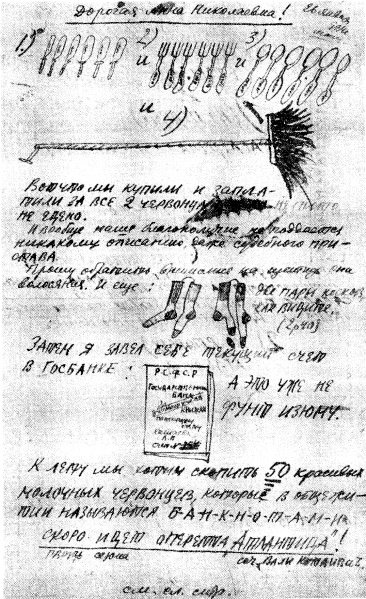 Дорогая Анна Николаевна!
1) 2) 3)
и и
и
4)
Вот что мы купили и запла-
тили за все 2 червонца
не едено.
И вообще наше благополучие не поддается
никакому описанию даже судебного при-
става.
Прошу обратить внимание на
волосяная. И еще: две пары носков,
как видите.
(2р40)
Затем я завел себе текущий счет
в Госбанке:
Р.С.Ф.С.Р
Государственный
Банк
книжка
А это уже не
фунт изюму
К лету мы хотим скопить 50 красивых
молочных червонцев, которые в общежи-
тии называются Б-А-Н-К-Н-О-Т-А-М-И
Скоро идет оперетта "Атлантида"!
соч. Вали Катаевич
см. сл. стр.